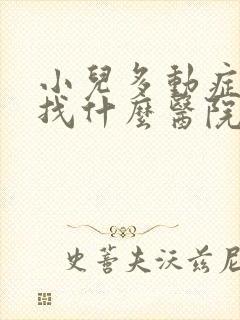 小兒多動症
找什麼醫院
史蒼夫沃茲尼